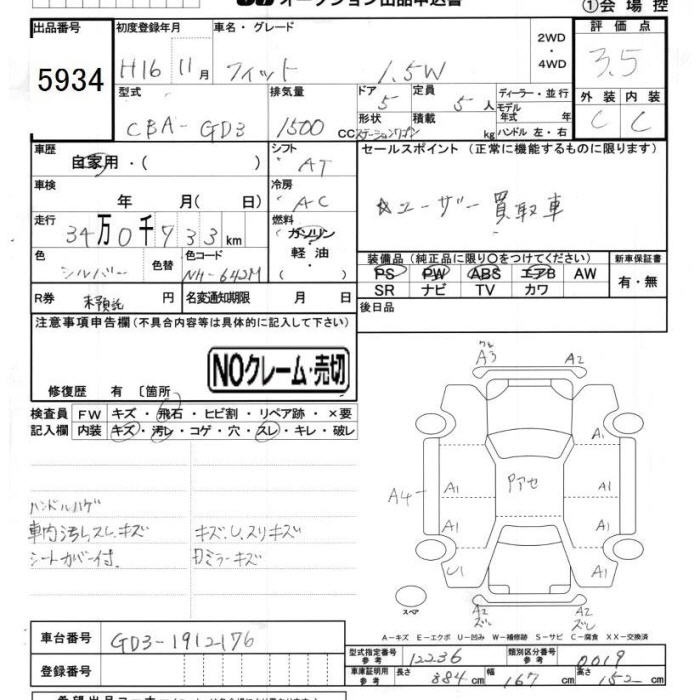 オークション出品申込書 ①会場控
出品番号 初度登録年月 車名・グレード 2WD・4WD 評価点
5934 H16 11月 フィット 1.5W 3.5
型式 排気量 ドア 定員 ディーラー・並行 外装 内装
CBA-GD3 1500 CC 5 5人 モデル年式 年 C C
形状 積載 ハンドル 左・右
ステーションワゴン kg
車歴 シフト セールスポイント(正常に機能するものに限ります)
自家用・( ) AT
車検 冷房
年 月( 日) AC ☆ユーザー買取車
走行 燃料
34万0千733km ガソリン
軽油
( )
色 色替 色コード 装備品(純正品に限り〇をつけてください) 新車保証書
シルバー NH-642M PS PW ABS エアB AW 有・無
SR ナビ TV カワ
R券 未預託 円 名変通知期限 月 日 後日品
注意事項申告欄(不具合内容等は具体的に記入して下さい)
NOクレーム・売切
修復歴 有 〔箇所
検査員 FW キズ・飛石・ヒビ割・リペア跡・×要
記入欄 内装 キズ・汚レ・コゲ・穴・スレ・キレ・破レ
A3 A2
A1
A4 A1 Pアセ A1
A1 A1
U1 A1
ハンドルハゲ
車内汚レスレキズ キズ.U.スリキズ
シートカバー付. 力ミラーキズ
スペア A2 ズレ A2 ズレ
A-キズ E-エクボ U-凹み W-補修跡 S-サビ C-腐食 XX-交換済
車台番号 GD3-1912176
型式指定番号 参考 12236 類別区分番号 参考 0019
登録番号 車庫証明用 参考 長さ 384cm 幅 167cm 高さ 152cm